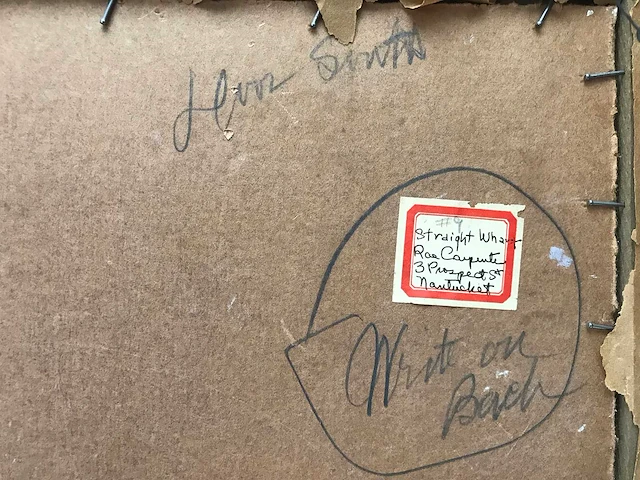 South
#9
Straight Wharf
Rae Carpenter
3 Prospect St
Nantucket
Write on
Back